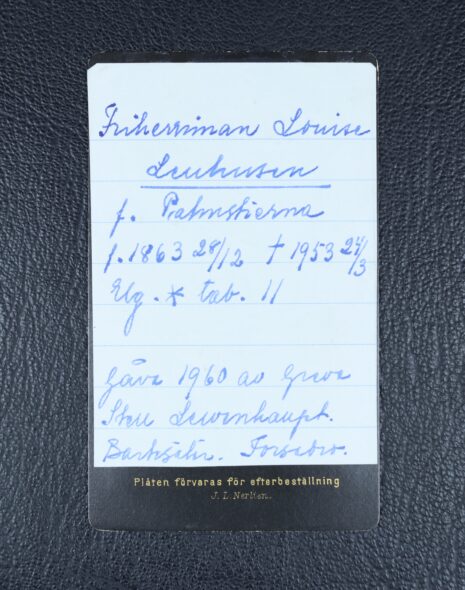 Friherrinnan Louise
Leuhusen
f. Palmstierna
f. 1863 28/12 † 1953 24/3
Elg. * tab. 11
Gåva 1960 av Greve
Sten Lewenhaupt.
Forssbro.
Plåten förvaras för efterbeställning
J. L. Nerlien.